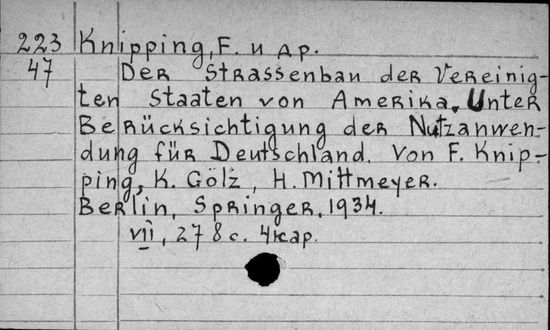 223 Knipping, F. и др.
47 Der Strassenbau der Vereinig-
ten Staaten von Amerika. Unter
Berücksichtigung der Nutzanwen-
dung für Deutschland. Von F. Knip-
ping, K. Gölz, H. Mittmeyer.
Berlin, Springer, 1934.
VII, 278 с. 4 кар.